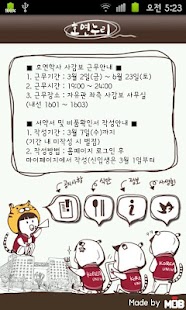 오전 5:23
호연누리
■ 호연학사 사감보 근무안내 ■
1. 근무기간 : 3월 2일(금) ~ 6월 23일(토)
2. 근무시간 : 19:00 ~ 24:00
3. 근무장소 : 자유관 좌측 사감보 사무실
(내선 1601 ~ 1603)
■ 서약서 및 비품확인서 작성안내 ■
1. 작성기간 : 3월 7일(수)까지
(기간 내 미작성 시 벌점)
2. 작성방법 : 홈페이지 로그인 후
마이페이지에서 작성(신입생은 3월 1일부터
공지사항
식단
정보
사생회
KOREA
KOREA
KOREA
Made by MOB